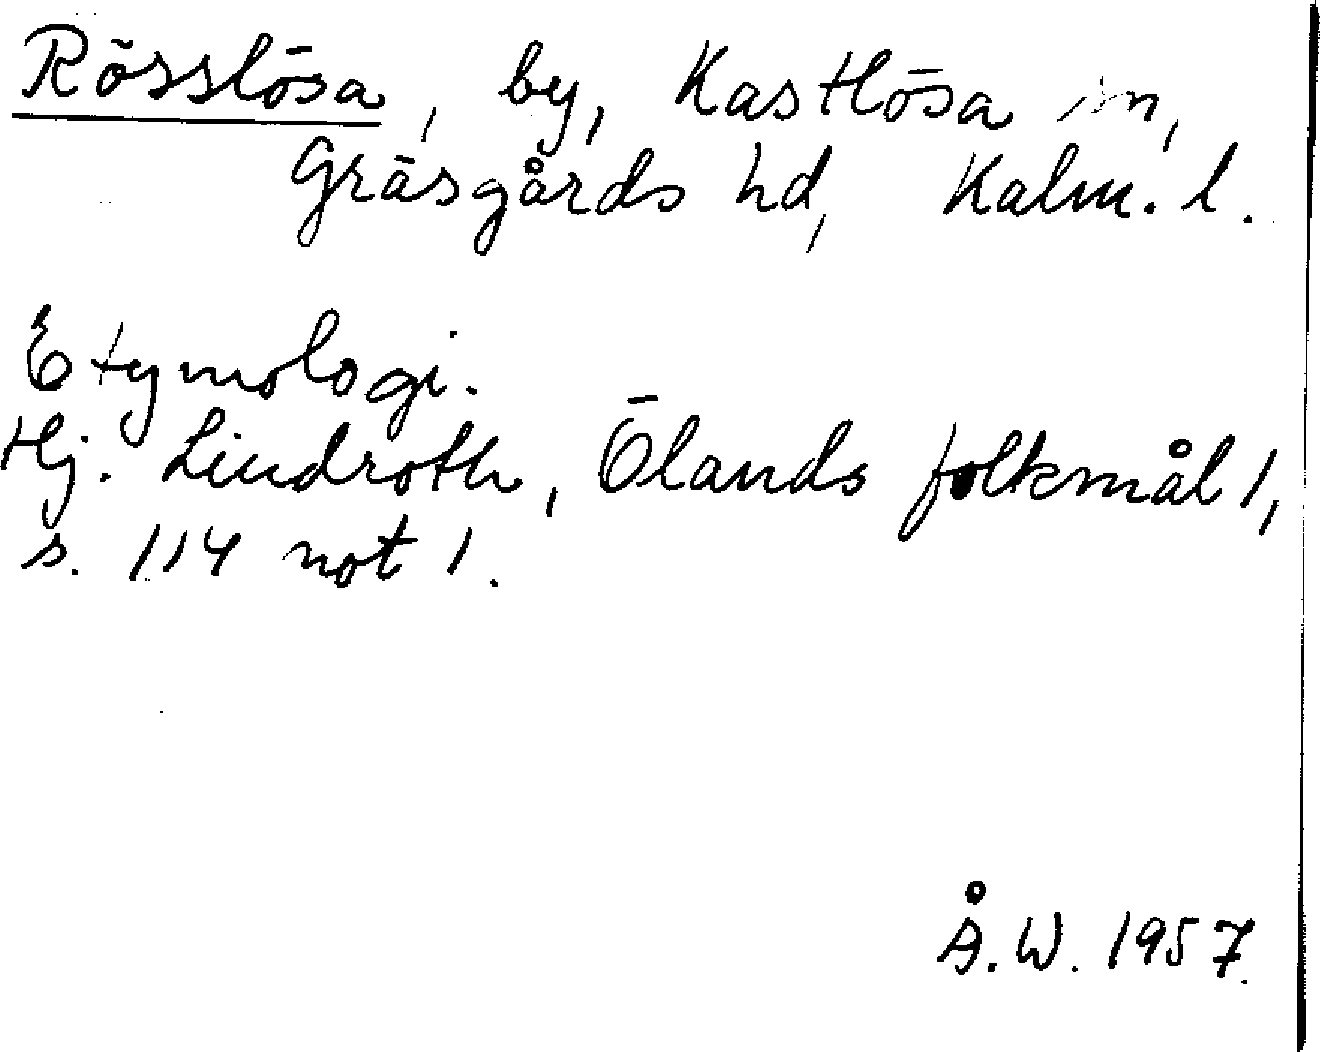 Rösslösa, by, Kastlösa sn,
Gräsgårds hd, Kalm. l.
Etymologi.
Hj. Lindroth, Ölands folkmål 1,
s. 114 not 1.
Å.W. 1957.